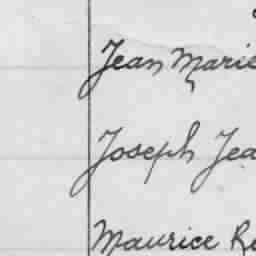 Jean Marie
Joseph Jea
Maurice Re